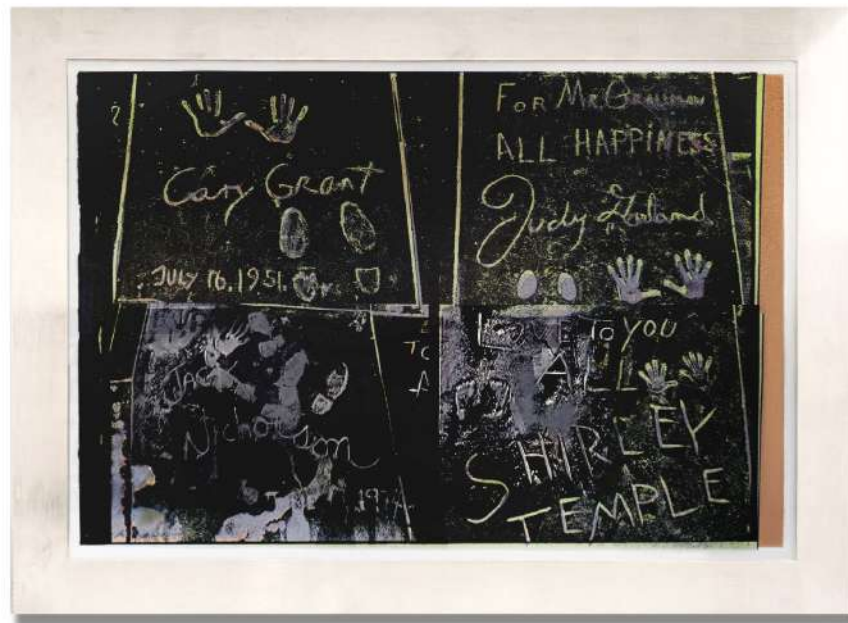 Cary Grant
JULY 16, 1951.
FOR MR. GRAUMAN
ALL HAPPINESS
Judy Garland
JACK
Nicholson
TO YOU
ALL
SHIRLEY
TEMPLE